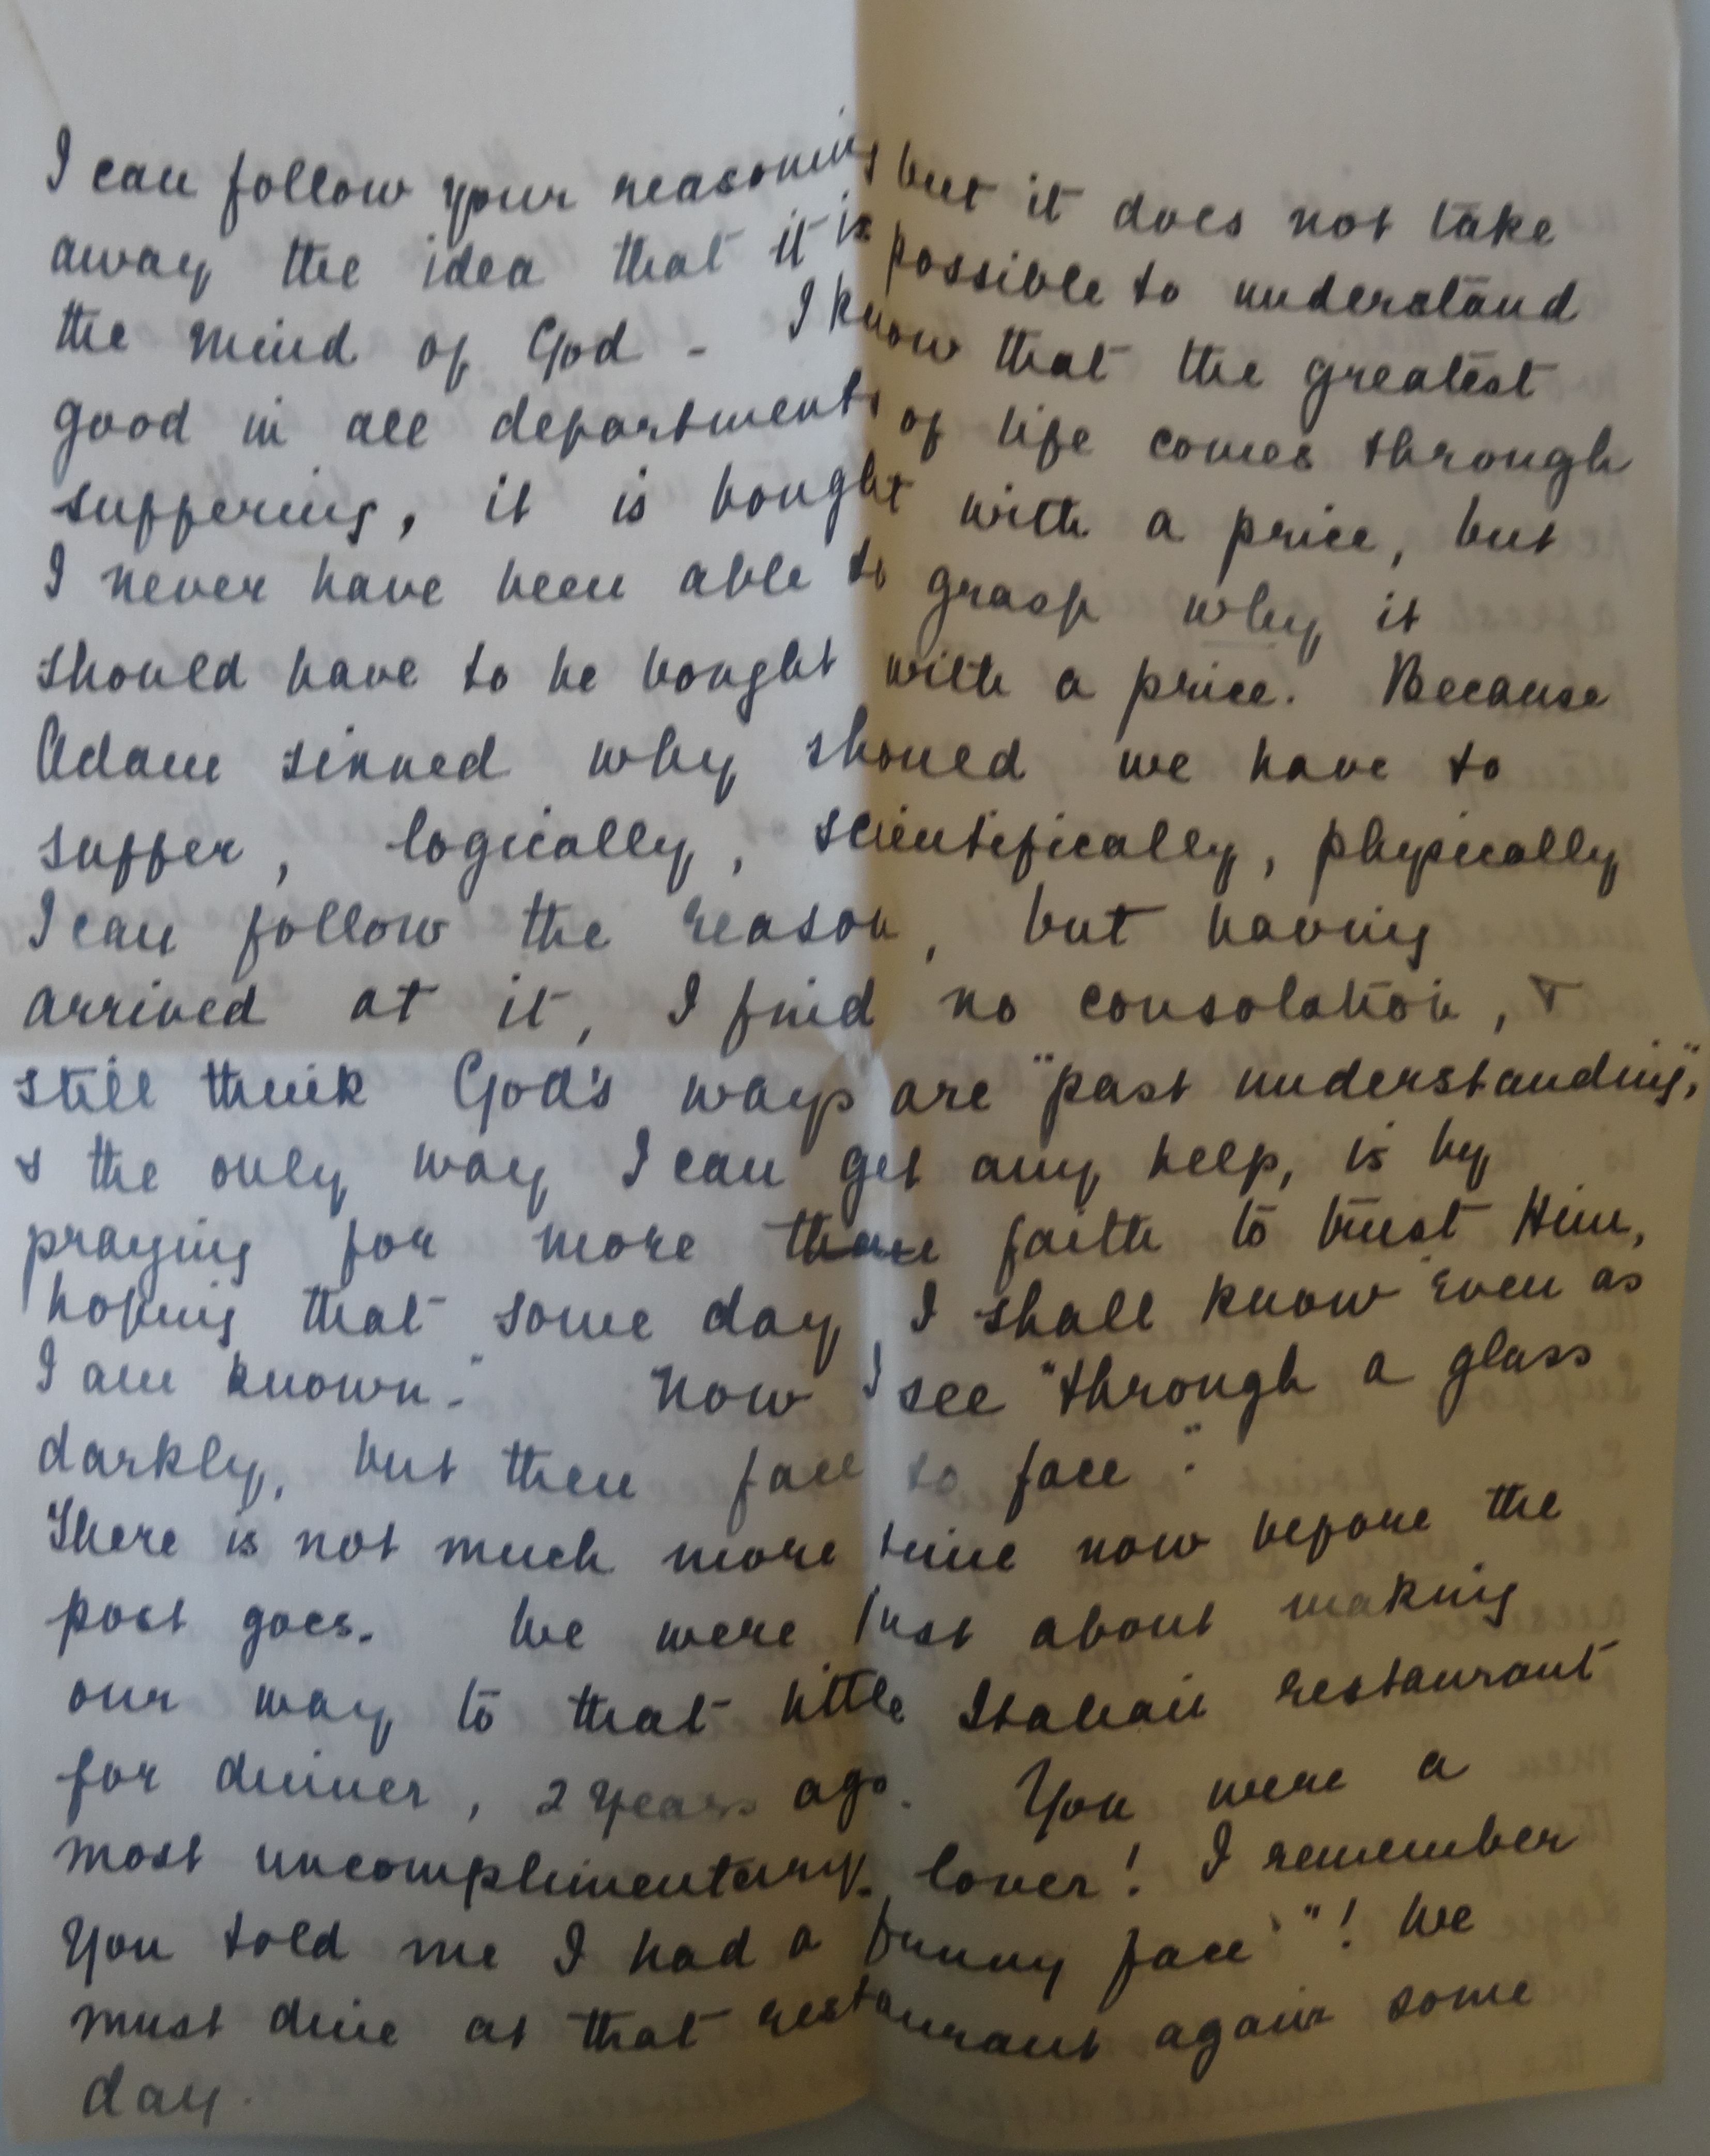 I can follow your reasoning but it does not take
away the idea that it is possible to understand
the mind of God - I know that the greatest
good in all departments of life comes through
suffering, it is bought with a price, but
I never have been able to grasp why it
should have to be bought with a price. Because
Adam sinned why should we have to
suffer, logically, scientifically, physically
I can follow the reason, but having
arrived at it, I find no consolation, &
still think God's ways are "past understanding",
& the only way I can get any help, is by
praying for more faith to trust Him,
hoping that some day I shall know "even as
I am known." Now I see "through a glass
darkly, but then face to face".
There is not much more time now before the
post goes. We were just about making
our way to that little Italian restaurant
for dinner, 2 years ago. You were a
most uncomplimentary lover! I remember
you told me I had a funny face"! We
must dine at that restaurant again some
day.